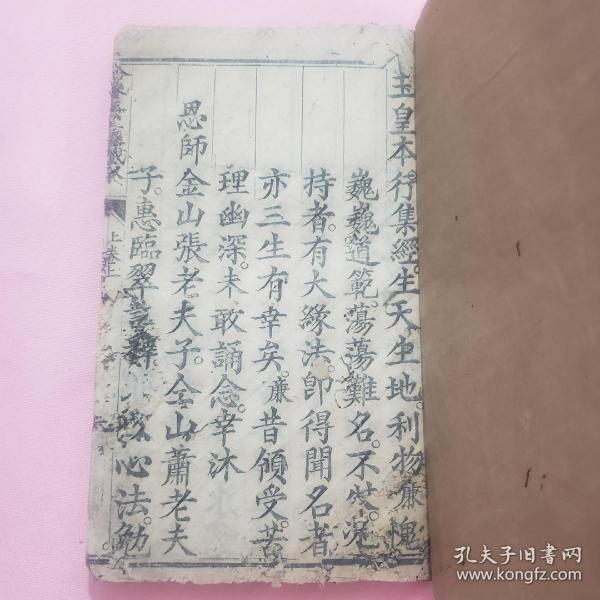 玉皇本行集經。生天生地。利物廉愧
巍巍道範。蕩蕩難名。不
持者。有大緣法。即得聞名者
亦三生有幸矣。廉昔領受。苦
理幽深。未敢誦念。幸沐
恩師金山張老夫子。金山蕭老夫
子。惠臨翠 心法。勉
上卷
孔夫子旧书网
www.kongfz.com